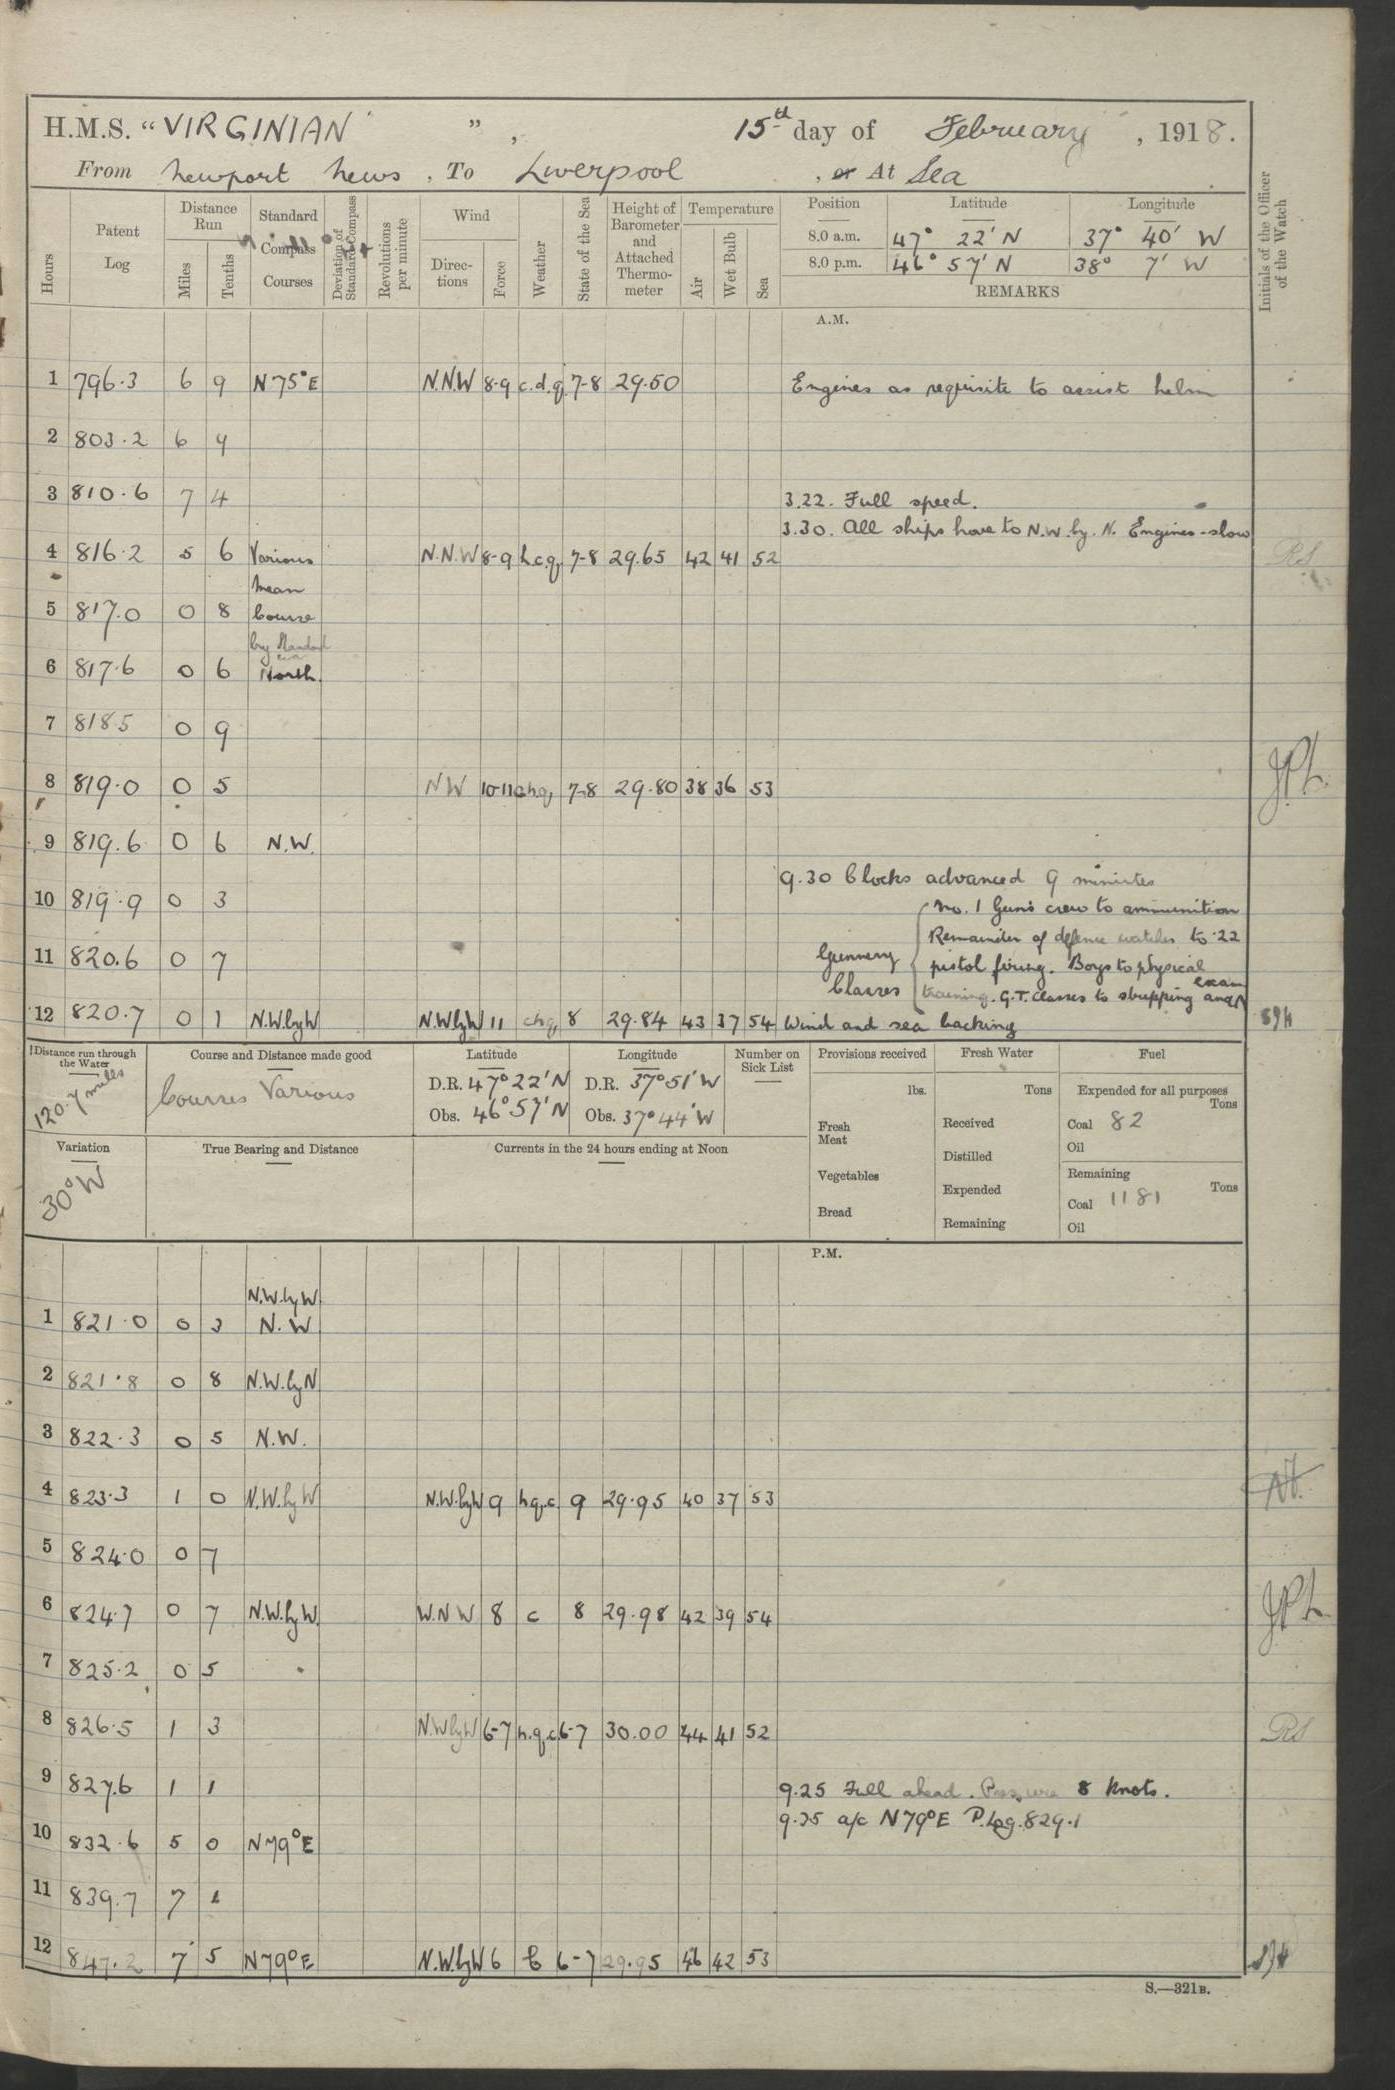 H.M.S. "VIRGINIAN", 15th day of February, 1918.
From Newport News, To Liverpool, or At Sea
Hours
Patent Log
Distance Run
Miles
Tenths
Standard Compass Courses
Deviation of Standard Compass
Revolutions per minute
Wind
Directions
Force
Weather
State of the Sea
Height of Barometer and Attached Thermometer
Temperature
Air
Wet Bulb
Sea
Position Latitude Longitude
8.0 a.m. 47° 22' N 37° 40' W
8.0 p.m. 46° 57' N 38° 7' W
REMARKS
Initials of the Officer of the Watch
A.M.
1 796.3 6 9 N75°E N.N.W 8-9 c.d.q. 7-8 29.50 Engines as requisite to assist helm
2 803.2 6 9
3 810.6 7 4 3.22. Full speed.
3.30. All ships hove to N.W. by. N. Engines - slow
4 816.2 5 6 Various N.N.W 8-9 h.c.q. 7-8 29.65 42 41 52 RS
mean
5 817.0 0 8 Course
by Standard
6 817.6 0 6 North.
7 818.5 0 9
8 819.0 0 5 NW 10-11 c.h.q. 7-8 29.80 38 36 53
9 819.6 0 6 N.W.
9.30 Clocks advanced 9 minutes
10 819.9 0 3
No. 1 Guns crew to ammunition
Remainder of defence watches to .22
11 820.6 0 7 Gunnery pistol firing. Boys to physical
Classes training. G.T. classes to stripping and exam
12 820.7 0 1 N.W.byW N.W.byW 11 chq, 8 29.84 43 37 54 Wind and sea backing
Distance run through the Water
120.7 miles
Course and Distance made good
Courses Various
Latitude
D.R. 47° 22' N
Obs. 46° 57' N
Longitude
D.R. 37° 51' W
Obs. 37° 44' W
Number on Sick List
Provisions received
lbs.
Fresh Meat
Vegetables
Bread
Fresh Water
Tons
Received
Distilled
Expended
Remaining
Fuel
Expended for all purposes
Tons
Coal 82
Oil
Remaining
Tons
Coal 1181
Oil
Variation
30° W
True Bearing and Distance
Currents in the 24 hours ending at Noon
P.M.
N.W.byW
1 821.0 0 3 N.W
2 821.8 0 8 N.W.byN
3 822.3 0 5 N.W.
4 823.3 1 0 N.W.byW N.W.byW 9 h.q.c. 9 29.95 40 37 53
5 824.0 0 7
6 824.7 0 7 N.W.byW. W.N.W 8 c 8 29.98 42 39 54
7 825.2 0 5
8 826.5 1 3 N.WbyW 6-7 h.q.c. 6-7 30.00 44 41 52 RS
9 827.6 1 1 9.25 Full ahead. 8 knots.
9.35 a/c N79°E P.Log.829.1
10 832.6 5 0 N79°E
11 839.7 7 1
12 847.2 7 5 N79°E N.W.byW 6 b 6-7 29.95 46 42 53
S.—321B.